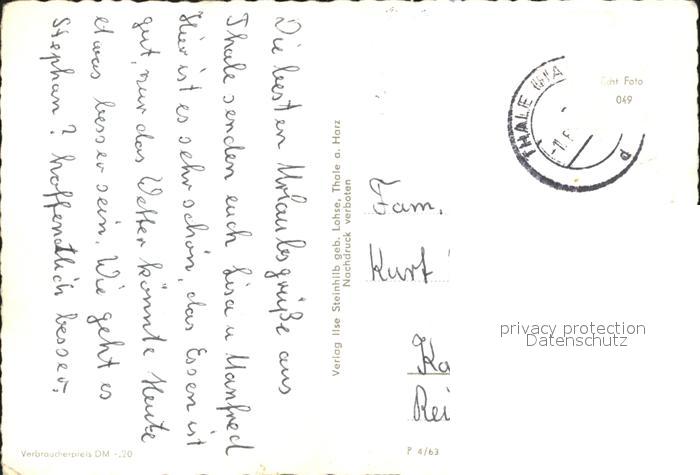 Die besten Urlaubsgrüße aus
Thale senden euch Lisa u Manfred
Hier ist es sehr schön, das Essen ist
gut, nur das Wetter könnte Heute
etwas besser sein. Wie geht es
Stephan? hoffentlich besser.
Verlag Ilse Steinhilb geb. Lohse, Thale a. Harz
Nachdruck verboten
Fam.
Kurt
Ka
Rei
THALE
Echt Foto
049
d
privacy protection
Datenschutz
Verbraucherpreis DM -.20
P 4/63